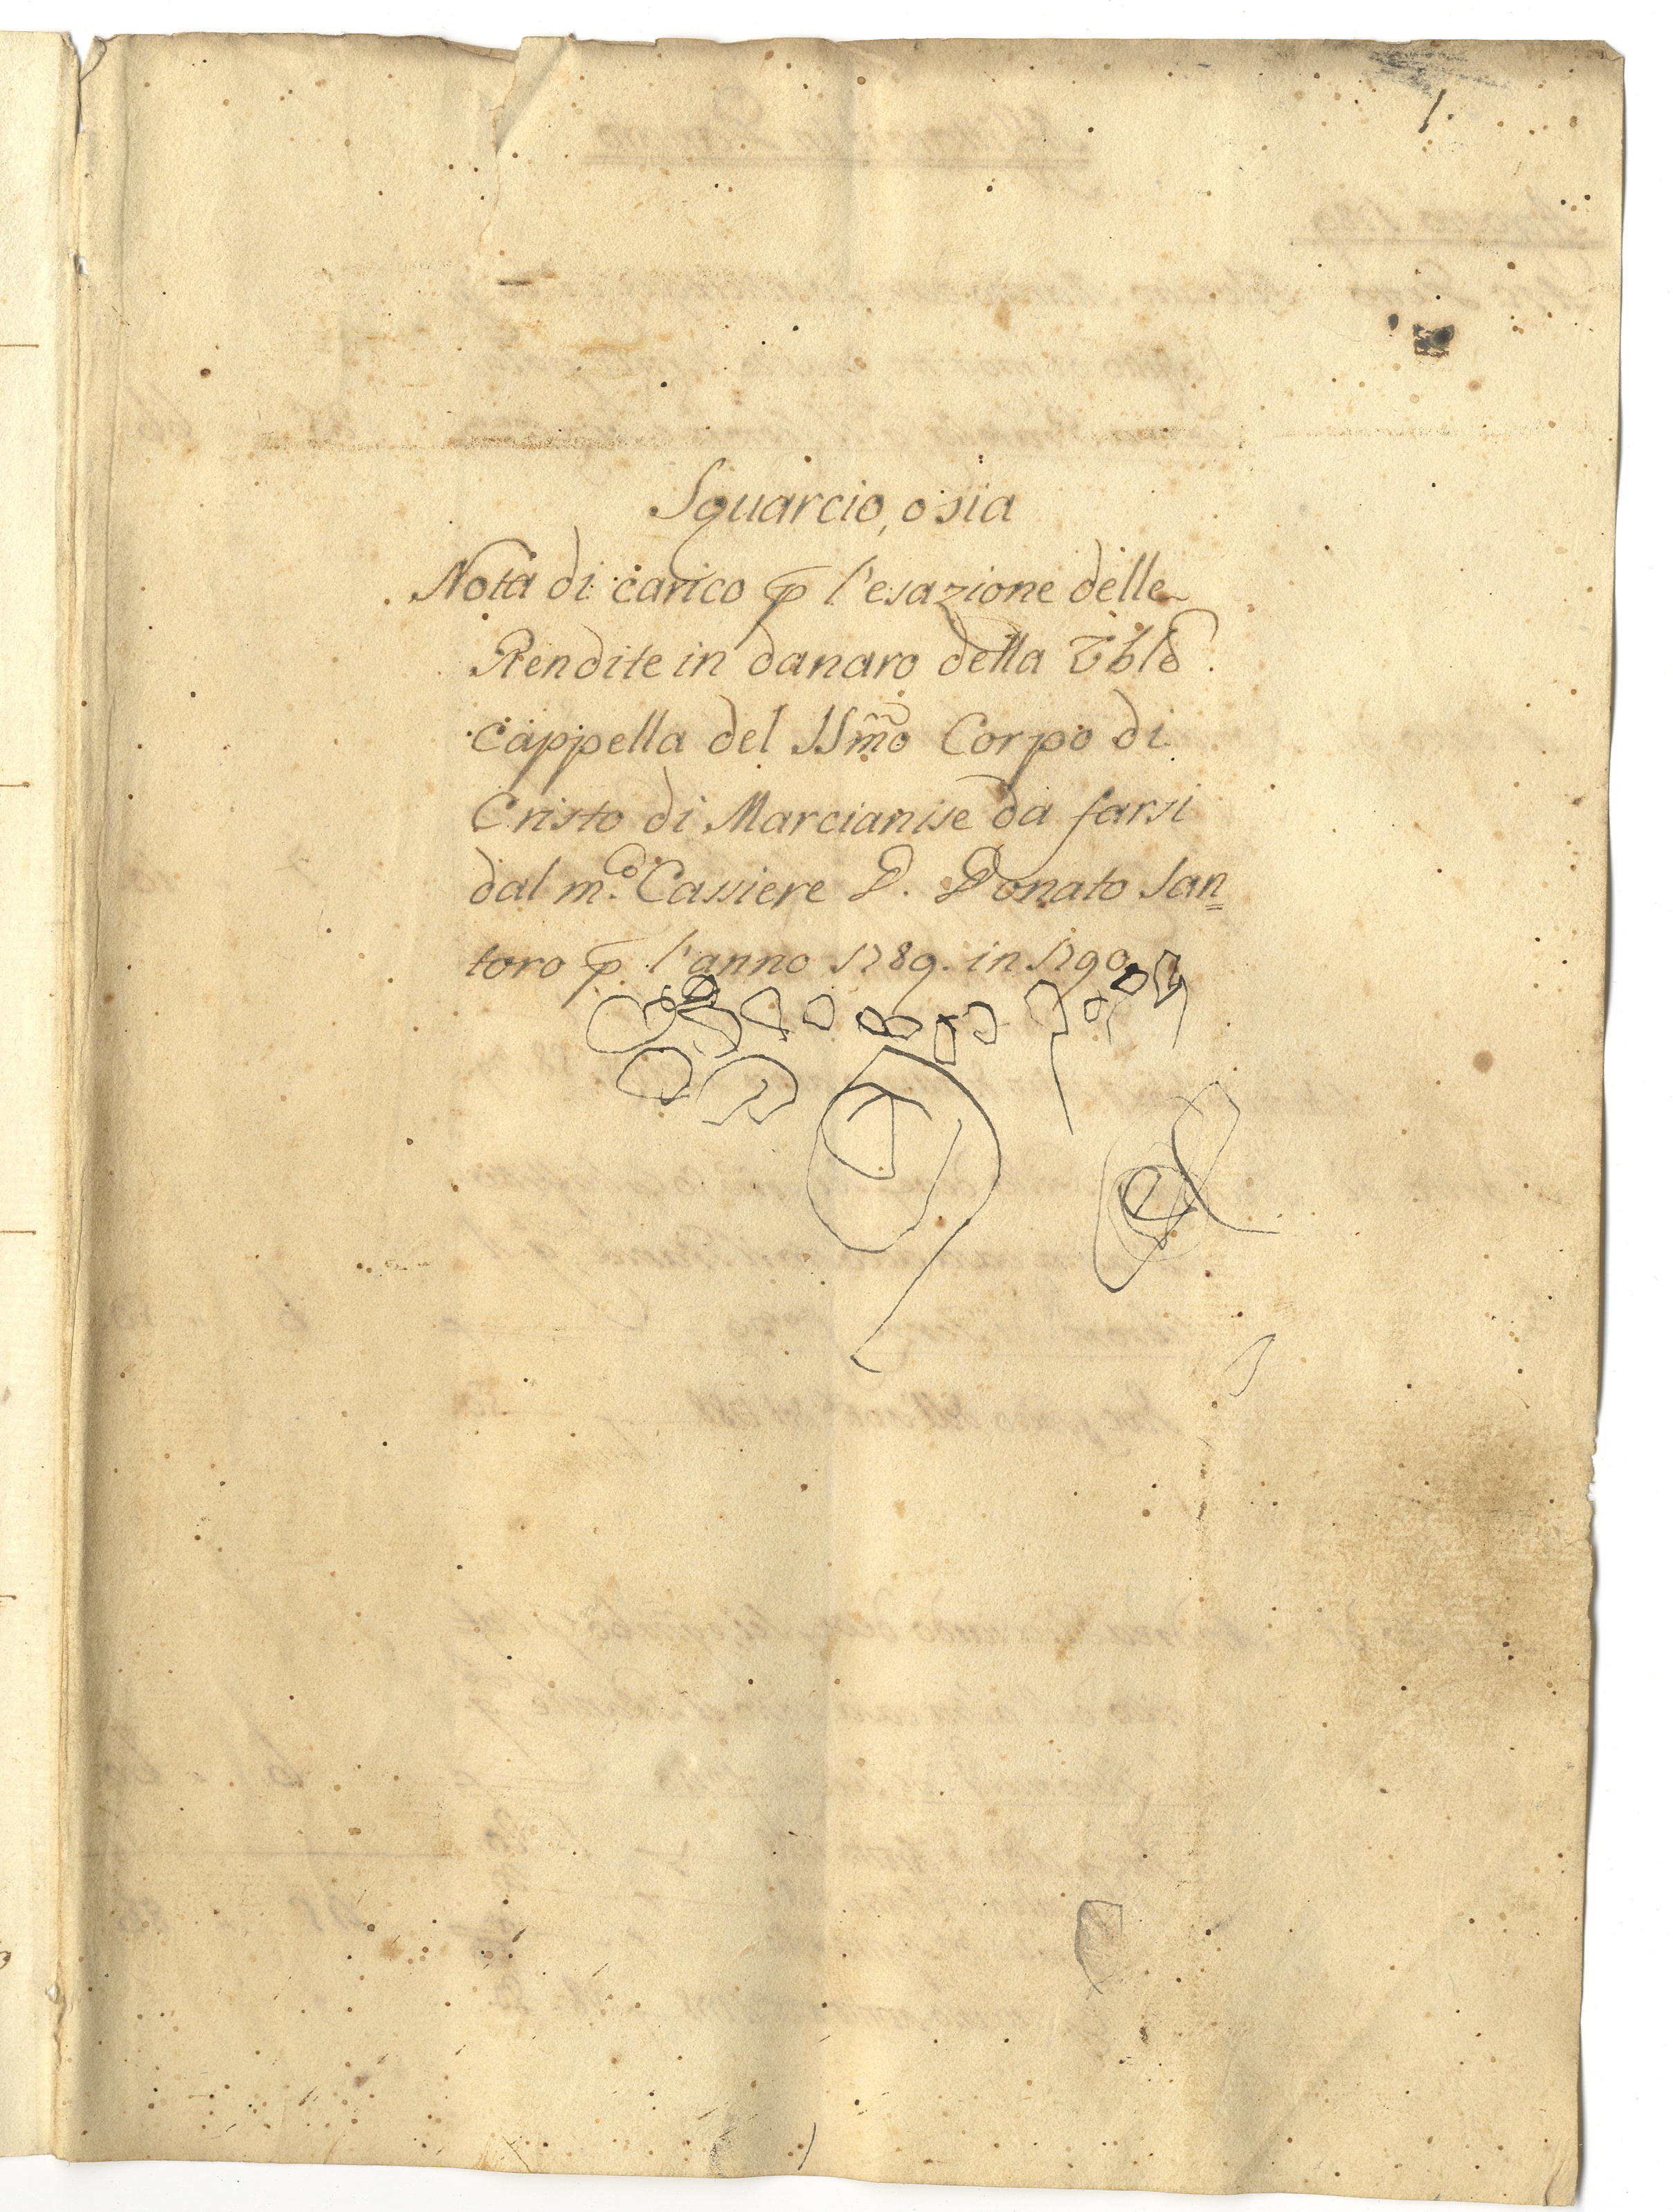 1.
Squarcio, o sia
Nota di carico p l'esazione delle
Rendite in danaro della
Cappella del SSmo Corpo di
Cristo di Marcianise da farsi
dal m.co Cassiere D. Donato San=
toro p l'anno 1789. in 1790